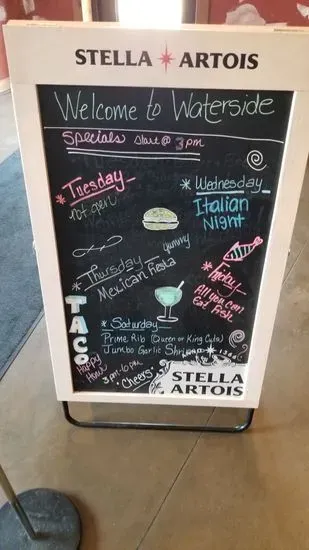 STELLA ARTOIS
Welcome to Waterside
Specials Start @ 3pm
* Tuesday
not open
* Wednesday
Italian
Night
yummy
* Thursday
Mexican Fiesta
* Friday
All you can
Eat Fish
TACO
Happy
Hour
3pm-6pm
* Saturday
Prime Rib (Queen or King Cuts)
Jumbo Garlic Shrimp
"Cheers"
STELLA
ARTOIS